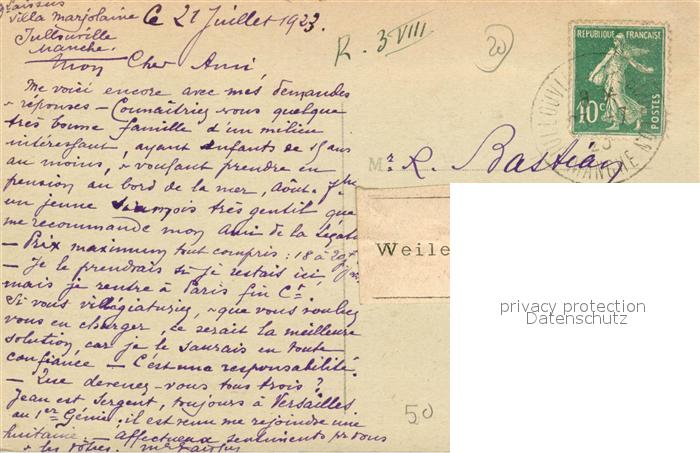 Villa Marjolaine Ce 21 Juillet 1923.
Jullouville
Manche.
R. 3 VIII
20
Mon Cher Ami,
Me voici encore avec mes demandes
& réponses - Connaîtriez-vous quelque
très bonne famille d'un milieu
intéressant, ayant enfants de 15 ans
au moins, & voulant prendre en
pension au bord de la mer, Août -
un jeune siamois très gentil que
me recommande mon Ami de la Légat
- Prix maximum tout compris : 18 à 20 f
- Je le prendrais si je restais ici,
mais je rentre à Paris fin Ct.
Si vous villégiaturiez, & que vous vouliez
vous en charger, ce serait la meilleure
solution car je le saurais en toute
confiance - C'est une responsabilité.
- Que devenez-vous tous trois ?
Jean est Sergent, toujours à Versailles
au 1er Génie ; il est venu me rejoindre une
huitaine. - affectueux sentiments pr vous
& les vôtres.
REPUBLIQUE FRANÇAISE
10c
POSTES
23
MANCHE
Mr R. Bastian
Weile
50
privacy protection
Datenschutz